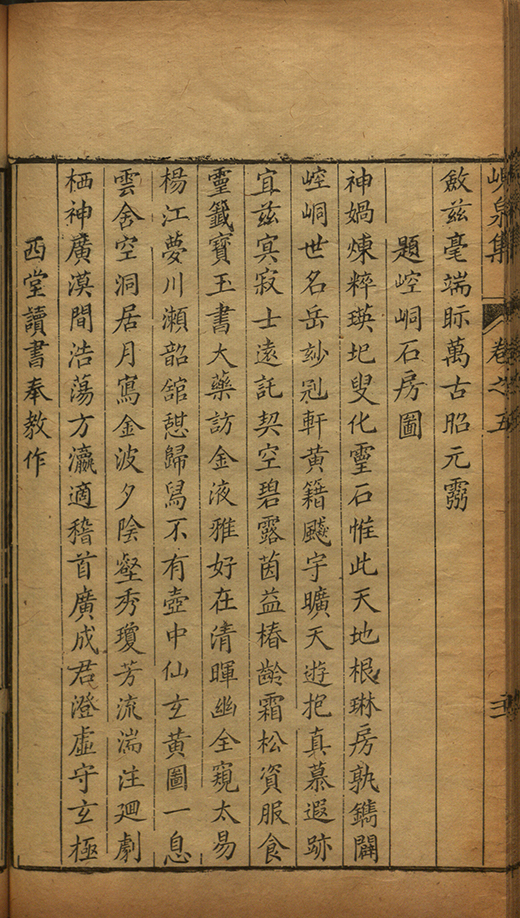 峴泉集 卷之五 三
斂茲毫端眎萬古昭元霛
題崆峒石房圖
神媧煉粹瑛圯叟化霊石惟此天地根琳房孰鐫闢
崆峒世名岳玅冠軒黄籍飇宇曠天遊抱真慕遐跡
宜茲㝠寂士遠託契空碧露茵益椿齡霜松資服食
霊籤寳玉書大藥訪金液雅好在清暉幽全窺太易
楊江夢川瀬韶舘憇歸舄不有壺中仙玄黄圖一息
雲舍空洞居月寫金波夕陰壑秀瓊芳流湍注廻劇
栖神廣漠間浩蕩方瀛適稽首廣成君澄虚守玄極
西堂讀書奉教作